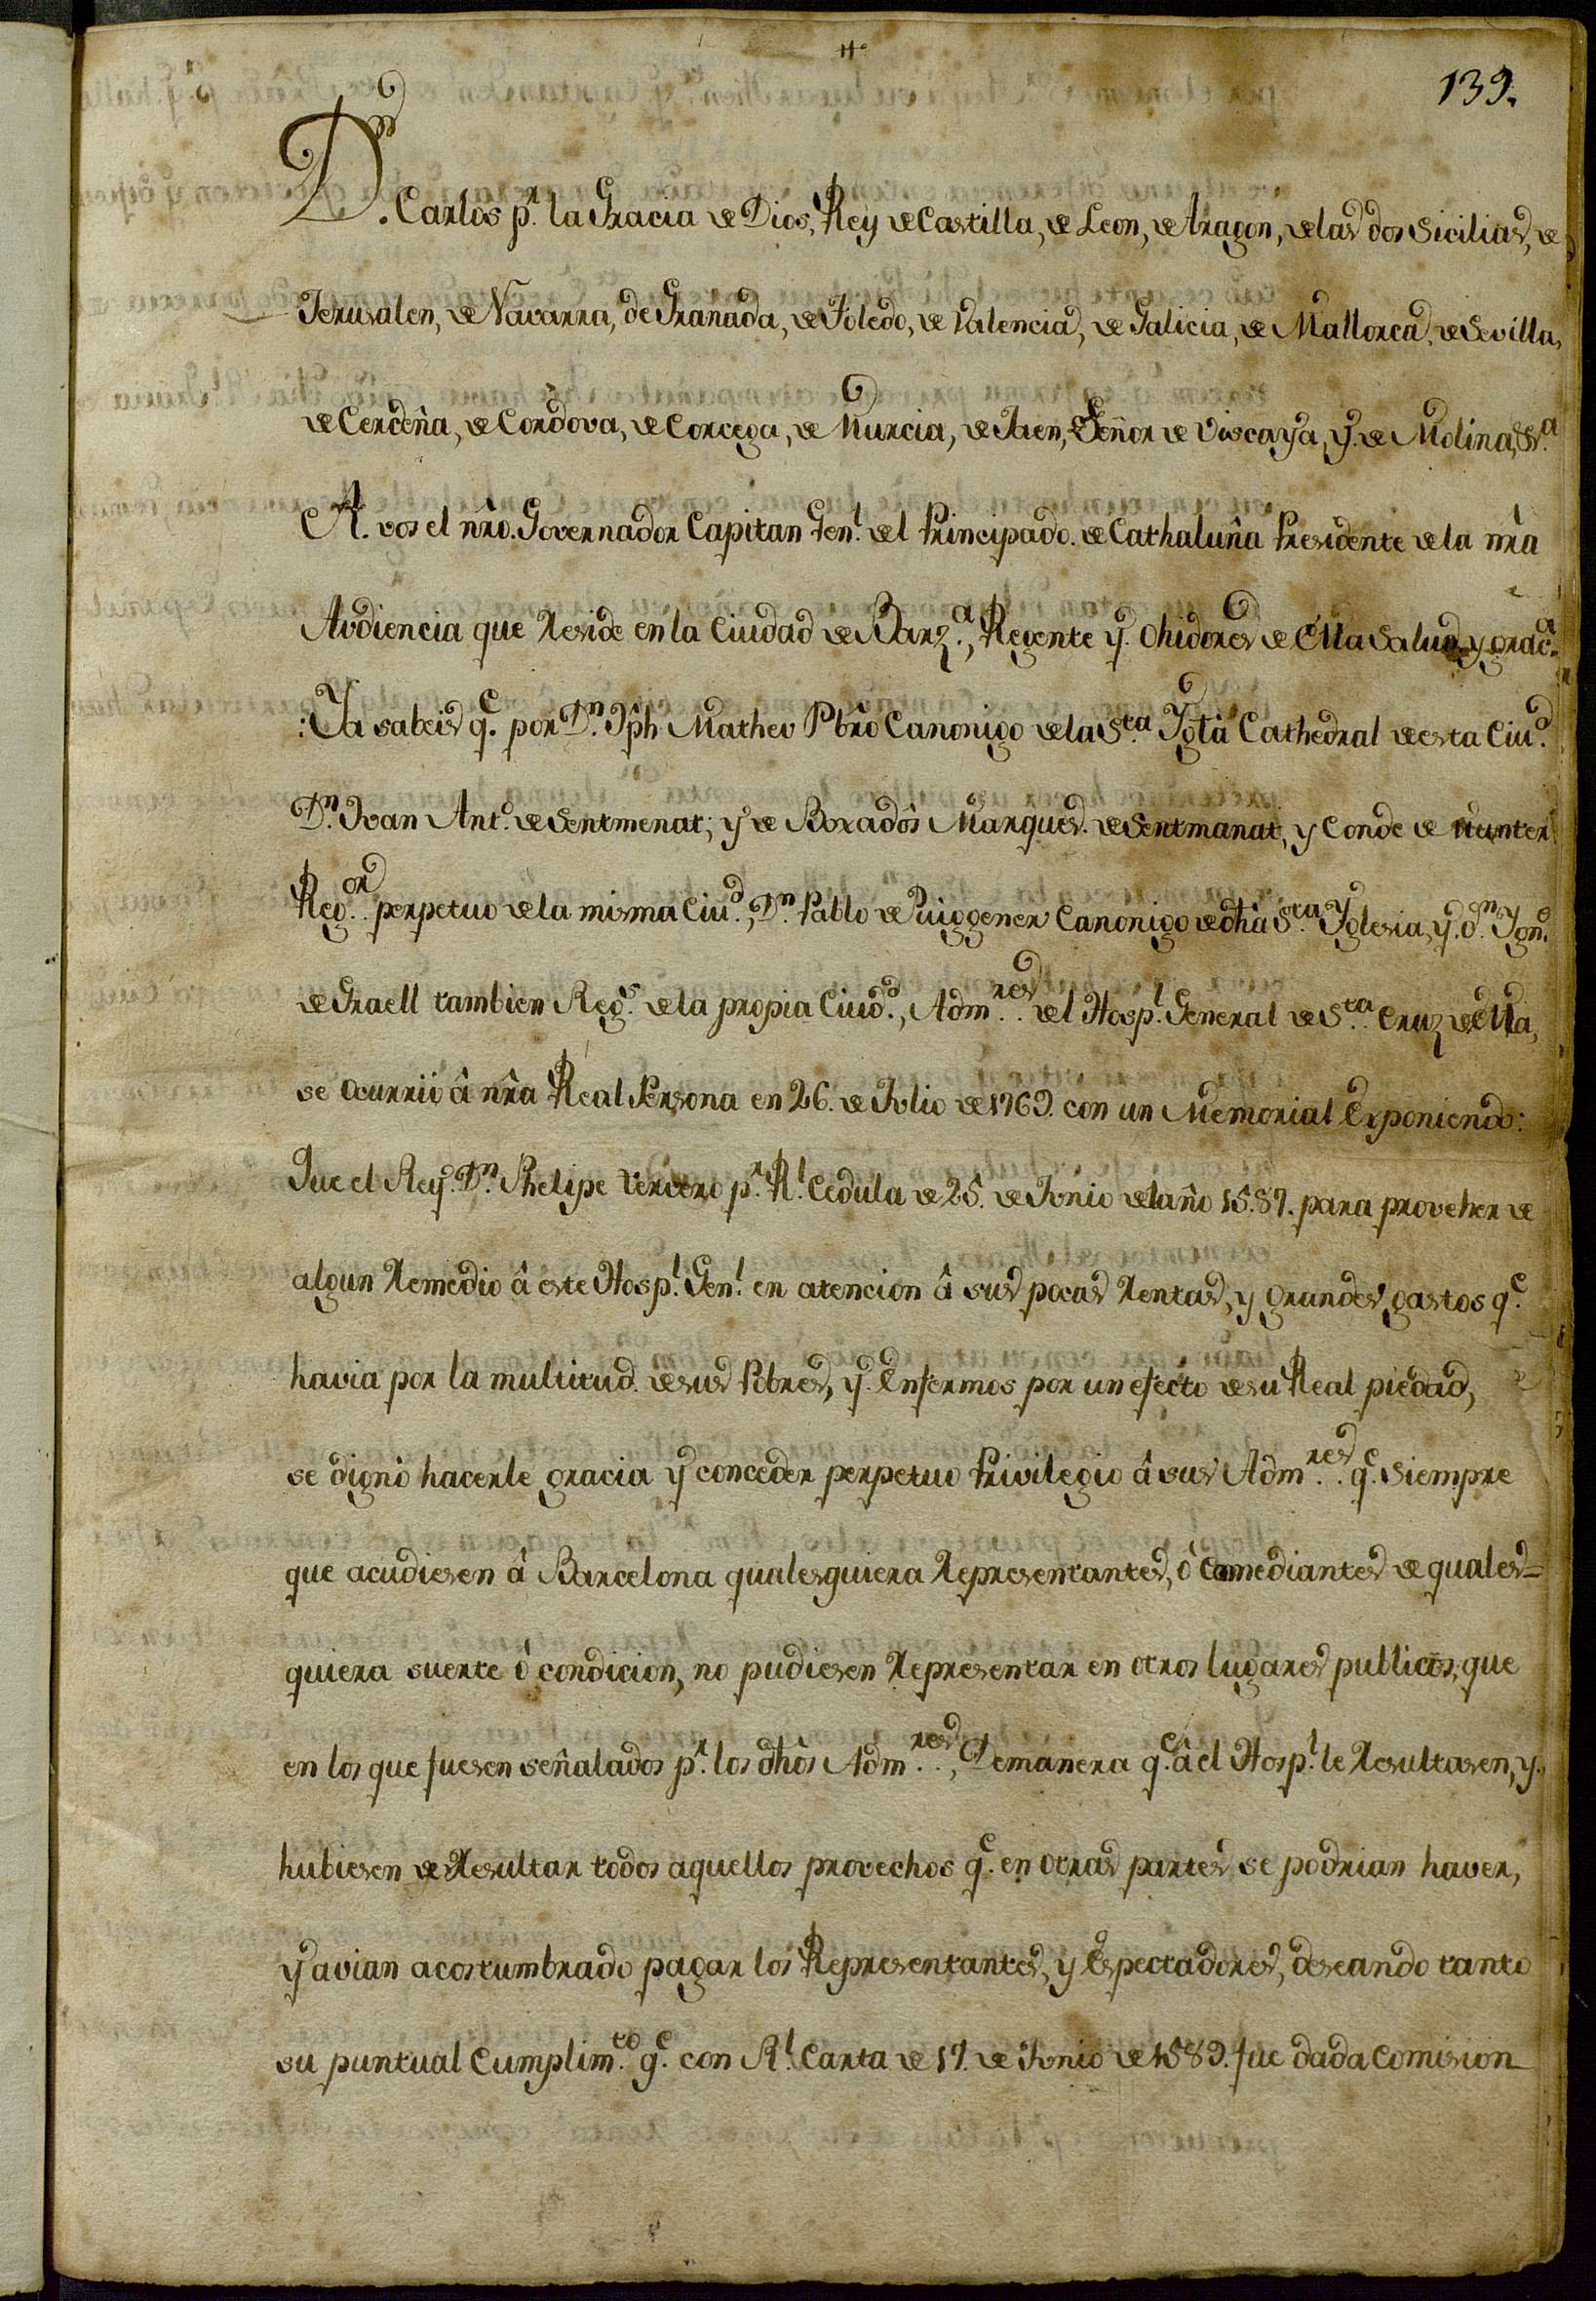 139.
D. Carlos pr. la Gracia de Dios, Rey de Castilla, de Leon, de Aragon, de las dos Sicilias, de
Jerusalen, de Navarra, de Granada, de Toledo, de Valencia, de Galicia, de Mallorca, de Sevilla,
de Cerdeña, de Cordova, de Corcega, de Murcia, de Jaen, Señor de Viscaya, y. de Molina, &.a
A. vos el nro. Governador Capitan Genl. del Principado. de Cathaluña Presidente de la nra
Audiencia que Reside en la Ciudad de Barz.a, Regente y. Ohidores de ella Salud, y grac.a
: Ya sabeis qe. por Dn. Jph Matheu Pbro Canonigo de la Sta. Ygla Cathedral de esta Ciud.
Dn. Juan Anto. de Sentmenat; y de Boxadós Marques. de Sentmanat, y Conde de Munter
Reg.or perpetuo de la misma Ciud., Dn. Pablo de Puiggener Canonigo de dha Sta. Yglesia, y. Dn. Ygno.
de Graell tambien Regr. de la propia Ciudd., Adm.res del Hospl. General de Sta. Cruz de ella,
se ocurrió â nra Real Persona en 26. de Julio de 1769. con un Memorial Exponiendo:
Que el Rey. Dn. Phelipe tercero pr. Rl. Cedula de 25. de Junio del año 1587. para proveher de
algun Remedio â este Hospl. Genl. en atencion â sus pocas Rentas, y grandes gastos qe.
havia por la multitud. de sus Pobres, y. Enfermos por un efecto de su Real piedad,
se dignó hacerle gracia y conceder perpetuo Privilegio â sus Adm.res qe. siempre
que acudiesen â Barcelona qualesquiera Representantes, ô Comediantes de quales=
quiera suerte ô condicion, no pudiesen Representar en otros lugares publicos, que
en los que fuesen señalados pr. los dhos Adm.res, Demanera qe. â el Hospl. le Resultasen, y.
hubiesen de Resultar todos aquellos provechos qe. en otras partes se podrian haver,
y avian acostumbrado pagar los Representantes, y Espectadores, deseando tanto
su puntual Cumplim.to qe. con Rl. Carta de 17. de Junio de 1589. fue dada Comision